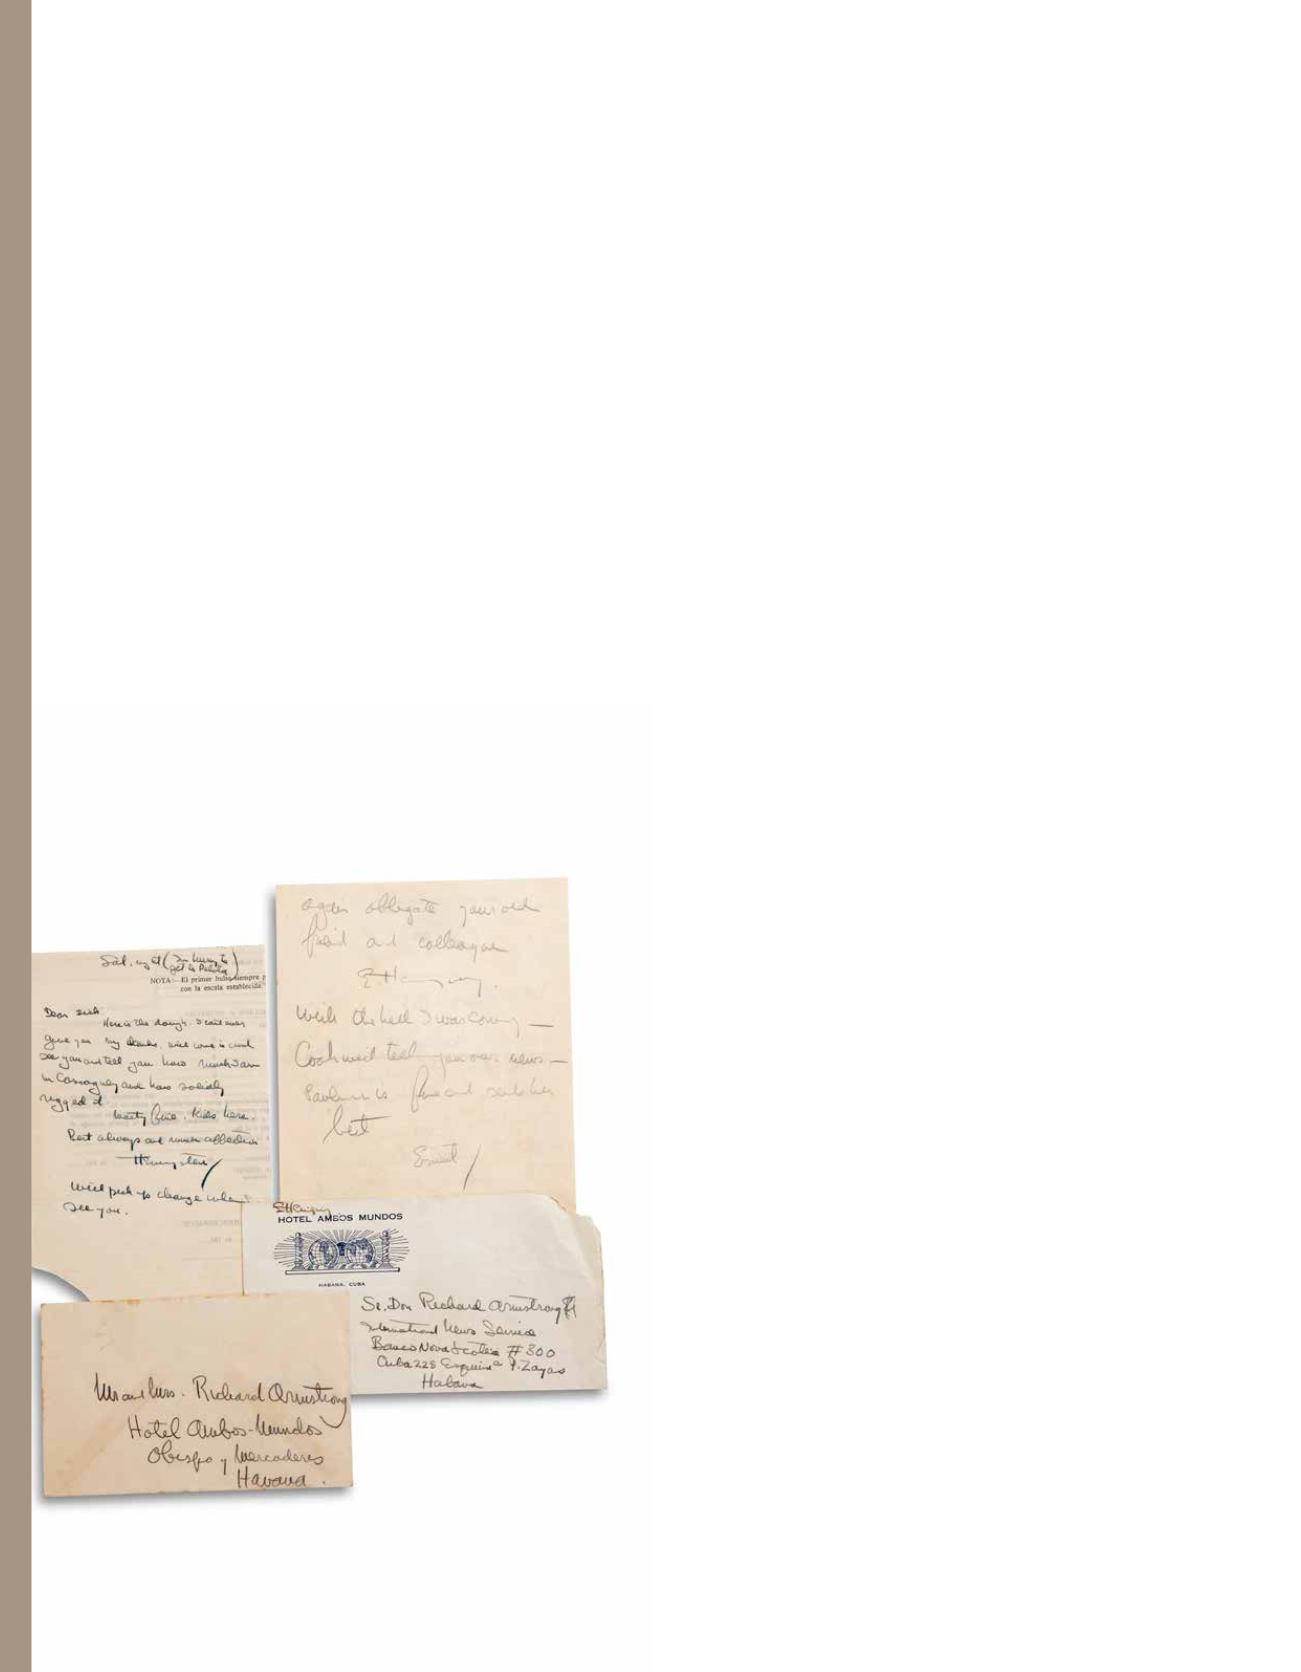 Sat. night (In hurry to
get to Pelota)
NOTA:—El primer bulto siempre p
con la escala establecida.
Dear Dick
Here is the dough. I can't ever
give you my thanks. Will come in and
see you and tell you how much I am
in Camaguey and how solidly
rugged it
Marty fine. Kids here.
Best always and much affection
Hemingstein
Will pick up change when I
see you.
again obligate your old
friend and colleague
EHemingway.
Wish the hell I was coming —
Cooh will tell you our news —
Pauline is fine and sends her
best
Ernest
EHemingway
HOTEL AMBOS MUNDOS
HABANA, CUBA
Sr. Don Richard Armstrong
International News Service
Banco Nova Scotia #300
Cuba 225 Esquina a P. Zayas
Habana
Mr and Mrs. Richard Armstrong
Hotel Ambos-Mundos
Obispo y Mercaderes
Havana.